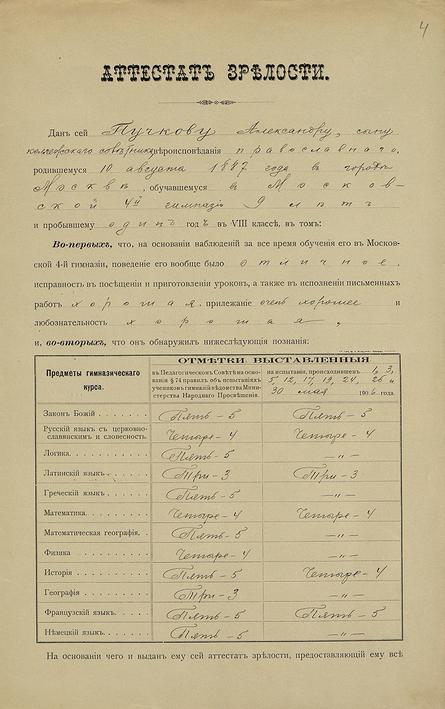 4
АТТЕСТАТЪ ЗРѢЛОСТИ.
Данъ сей Пучкову Александру, сыну
коллежскаго совѣтника вѣроисповѣданія православнаго,
родившемуся 10 августа 1887 года въ городѣ
Москвѣ, обучавшемуся въ Москов-
ской 4й гимназіи 9 лѣтъ
и пробывшему одинъ годъ въ VIII классѣ, въ томъ:
Во-первыхъ, что, на основаніи наблюденій за все время обученія его въ Москов-
ской 4-й гимназіи, поведеніе его вообще было отличное,
исправность въ посѣщеніи и приготовленіи уроковъ, а также въ исполненіи письменныхъ
работъ хорошая, прилежаніе очень хорошее и
любознательность хорошая,
и, во-вторыхъ, что онъ обнаружилъ нижеслѣдующія познанія:
Предметы гимназическаго курса.
ОТМѢТКИ, ВЫСТАВЛЕННЫЯ
въ Педагогическомъ Совѣтѣ на осно-
ваніи § 74 правилъ объ испытаніяхъ
учениковъ гимназій вѣдомства Мини-
стерства Народнаго Просвѣщенія.
на испытаніи, происходившемъ 1, 3,
5, 12, 17, 19, 24, 26 и
30 мая 1906 года.
Законъ Божій Пять - 5 Пять - 5
Русскій языкъ съ церковно-
славянскимъ и словесность. Четыре - 4 Четыре - 4
Логика. Пять - 5 - " -
Латинскій языкъ Три - 3 Три - 3
Греческій языкъ Пять - 5 - " -
Математика. Четыре - 4 Четыре - 4
Математическая географія. Пять - 5 - " -
Физика Четыре - 4 - " -
Исторія Пять - 5 Четыре - 4
Географія Три - 3 - " -
Французскій языкъ. Пять - 5 Пять - 5
Нѣмецкій языкъ. Пять - 5 - " -
На основаніи чего и выданъ ему сей аттестатъ зрѣлости, предоставляющій ему всѣ